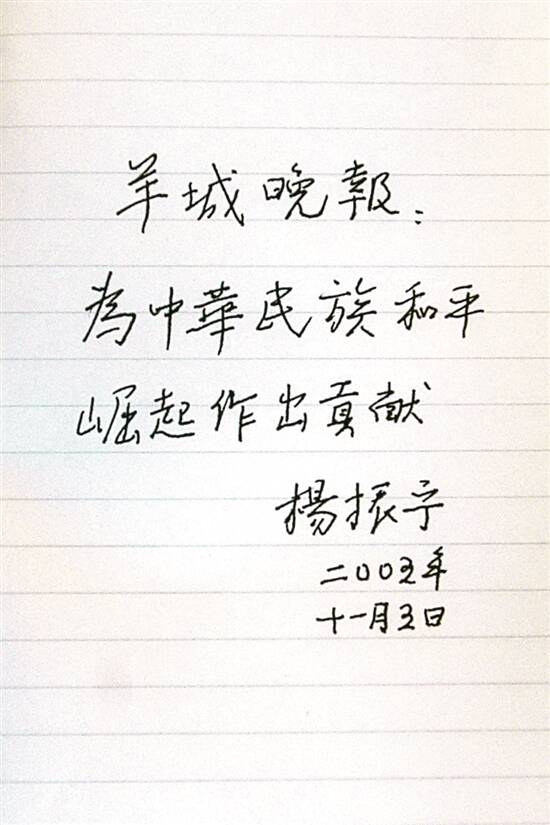 羊城晚報：
為中華民族和平
崛起作出貢献
楊振宁
二〇〇五年
十一月五日